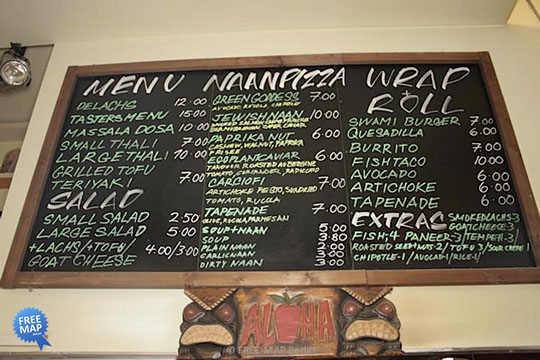 MENU
DELACHS 12.00
TASTERS MENU 15.00
MASSALA DOSA 10.00
SMALL THALI 7.00
LARGE THALI 10.00
GRILLED TOFU
TERIYAKI 7.00
SALAD
SMALL SALAD 2.50
LARGE SALAD 5.00
+LACHS/+TOFU/
GOAT CHEESE 4.00/3.00
NAANPIZZA
GREEN GODDESS 7.00
JEWISH NAAN 10.00
PAPRIKA NUT 6.00
CASHEW, WALNUT, PAPRIKA
FRISEE
EGGPLANCAVIAR 6.00
TOMATO, CORIANDER, RADICCHIO
CARCIOFI 7.00
TOMATO, RUCOLA
TAPENADE 7.00
OLIVE, RUCOLA PARMESAN
SOUP + NAAN 5.80
SOUP
PLAIN NAAN
GARLIC NAAN
DIRTY NAAN 3.80
WRAP
+
ROLL
SWAMI BURGER 7.00
QUESADILLA 6.00
BURRITO 7.00
FISH TACO 10.00
AVOCADO 6.00
ARTICHOKE 6.00
TAPENADE 6.00
EXTRAS SMOKEDLACHS-3
GOAT CHEESE-3/
FISH;4 PANEER-3/TEMPEH-3/
ROASTED SEED+NUTS-2/ TOFU 3/SOUR CREME 1
CHIPOTLE-1 / AVOCADO 1/RICE-1/
ALOHA
FREE
MAP
© FREE MAP Berlin